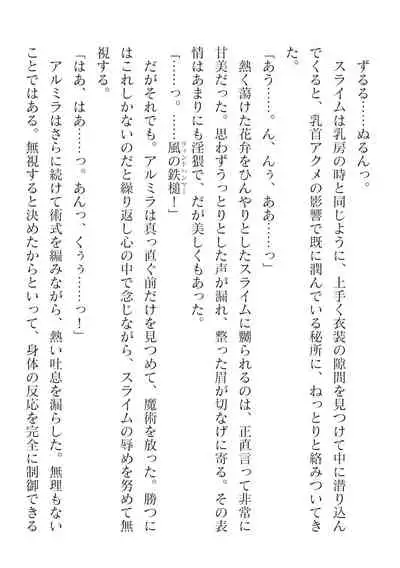 ずるる……ぬるんっ。
スライムは乳房の時と同じように、上手く衣装の隙間を見つけて中に潜り込ん
でくると、乳首アクメの影響で既に潤んでいる秘所に、ねっとりと絡みついてき
た。
「あう……。ん、んぅ、ああ……っ」
熱く蕩けた花弁をひんやりとしたスライムに嬲られるのは、正直言って非常に
甘美だった。思わずうっとりとした声が漏れ、整った眉が切なげに寄る。その表
情はあまりにも淫猥で、だが美しくもあった。
「……っ。……風の鉄槌！」
だがそれでも。アルミラは真っ直ぐ前だけを見つめて、魔術を放った。勝つに
はこれしかないのだと繰り返し心の中で念じながら、スライムの辱めを努めて無
視する。
「はあ、はあ……っ。あんっ、くぅぅ……っ！」
アルミラはさらに続けて術式を編みながら、熱い吐息を漏らした。無理もない
ことではある。無視すると決めたからといって、身体の反応を完全に制御できる